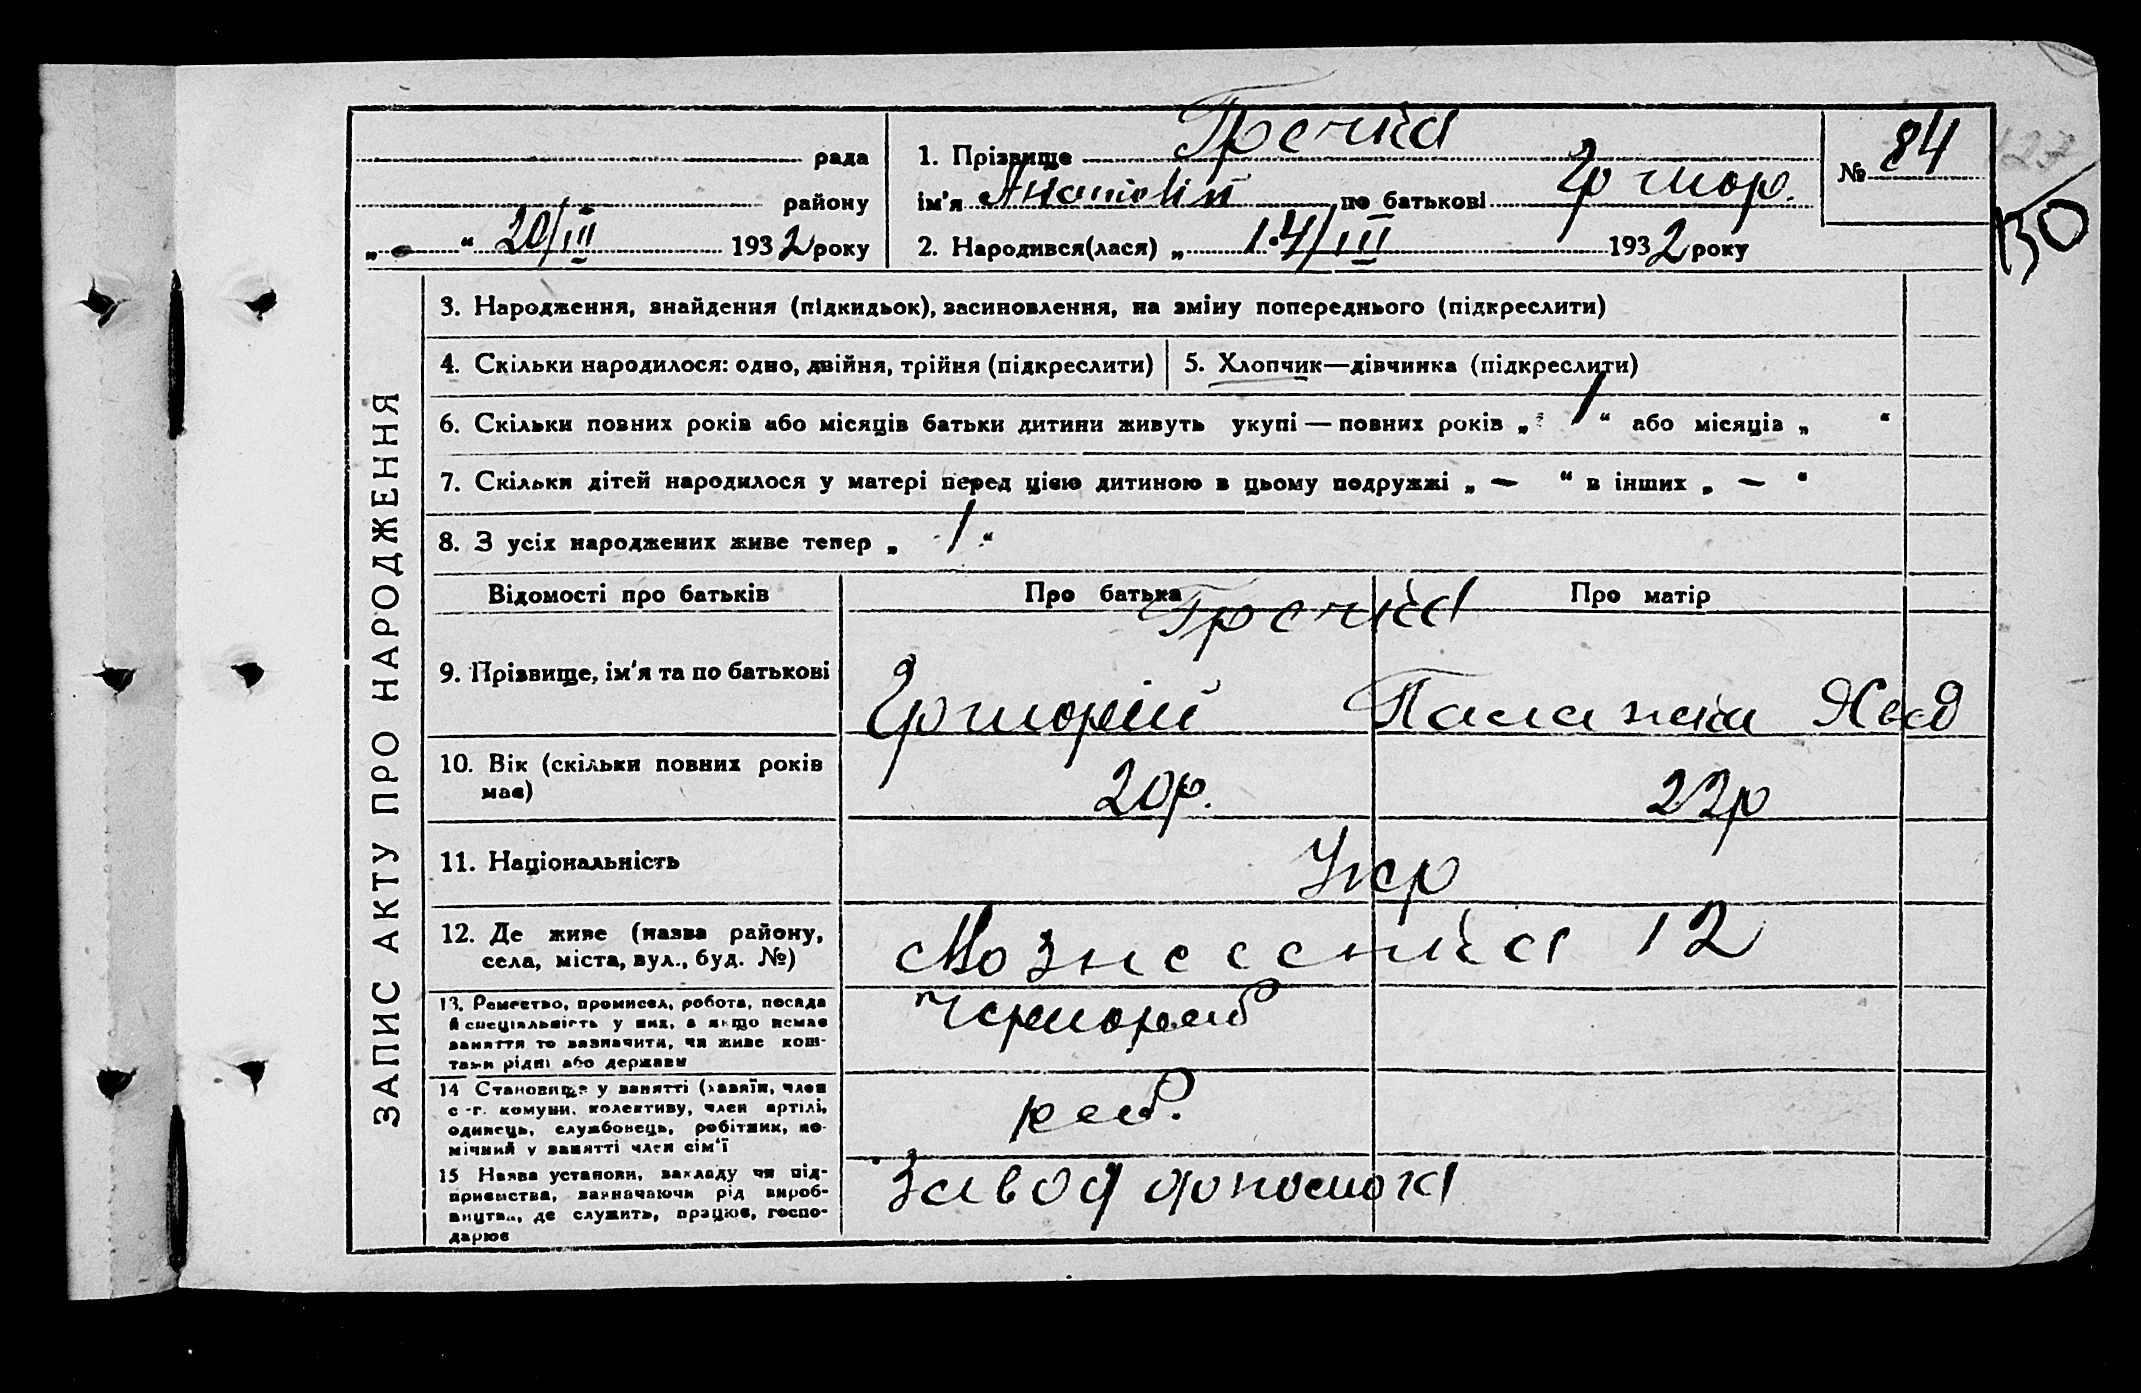 рада
району
„ - “ 20/III 1932 року
1. Прізвище Гречка
ім'я Анатолій по батькові Григор.
2. Народився(лася) „ 14/III 1932 року
№ 84
127
130
ЗАПИС АКТУ ПРО НАРОДЖЕННЯ
3. Народження, знайдення (підкидьок), засиновлення, на зміну попереднього (підкреслити)
4. Скільки народилося: одно, двійня, трійня (підкреслити)
5. Хлопчик—дівчинка (підкреслити)
6. Скільки повних років або місяців батьки дитини живуть укупі — повних років „ 1 “ або місяців „ “
7. Скільки дітей народилося у матері перед цією дитиною в цьому подружжі „ — “ в інших „ — “
8. З усіх народжених живе тепер „ 1 “
Відомості про батьків
Про батька
Про матір
9. Прізвище, ім'я та по батькові
Гречка
Григорій
Палажка
10. Вік (скільки повних років має)
20р.
22р
11. Національність
Укр
12. Де живе (назва району,
села, міста, вул., буд. №)
Вознесенська 12
13. Ремество, промисел, робота, посада
й спеціяльність у них, а якщо немає
заняття то зазначити, чи живе кош-
тами рідні або держави
Чорнороб
14 Становище у занятті (хазяїн, член
с.-г. комуни, колективу, член артілі,
одинець, службовець, робітник, по-
мічний у занятті член сім'ї
роб.
15 Назва установи, закладу чи під-
приємства, зазначаючи рід вироб-
ництва, де служить, працює, госпо-
дарює
Завод